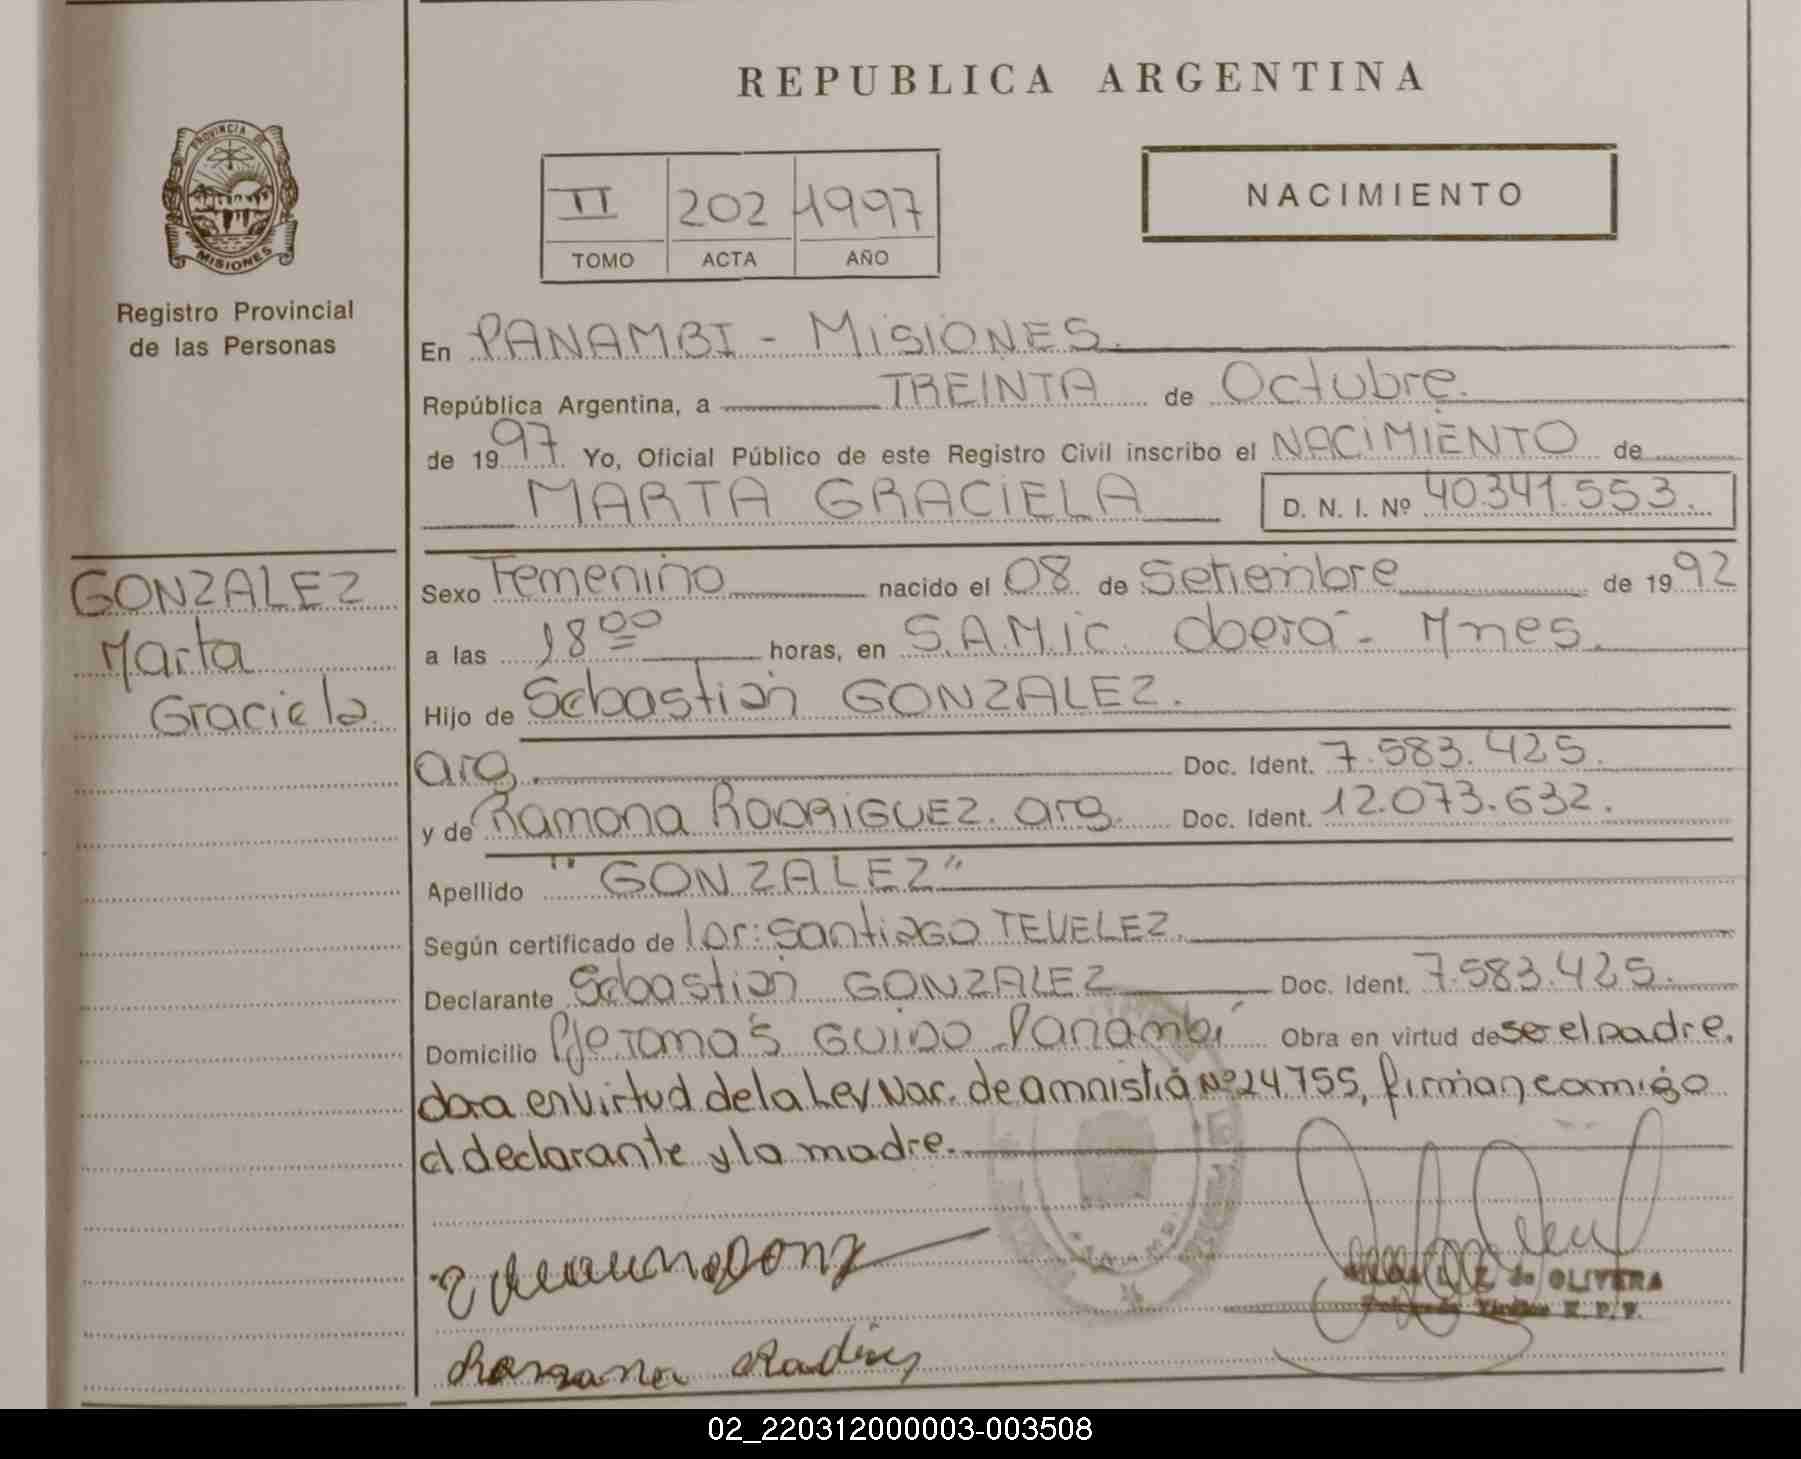 REPUBLICA ARGENTINA
PROVINCIA DE
MISIONES
Registro Provincial
de las Personas
II 202 1997
TOMO ACTA AÑO
NACIMIENTO
En PANAMBI - MISIONES.
República Argentina, a TREINTA de Octubre.
de 1997. Yo, Oficial Público de este Registro Civil inscribo el NACIMIENTO de
MARTA GRACIELA D. N. I. Nº 40.341.553.
GONZALEZ
Marta
Graciela
Sexo Femenino nacido el 08 de Setiembre de 1992
a las 18 00 horas, en S.A.M.i.C. Oberá - Mnes.
Hijo de Sebastián GONZALEZ.
arg. Doc. Ident. 7.583.425.
y de Ramona RODRIGUEZ. arg. Doc. Ident. 12.073.632.
Apellido "GONZALEZ"
Según certificado de Santiago TEVELEZ.
Declarante Sebastián GONZALEZ Doc. Ident. 7.583.425.
Domicilio Pje Tomás GUIDO Panambí Obra en virtud de ser el padre.
obra en virtud de la Ley Nac. de amnistiá Nº 24755, firman comigo
el declarante y la madre.
de OLIVERA
R. P. P.
02_220312000003-003508